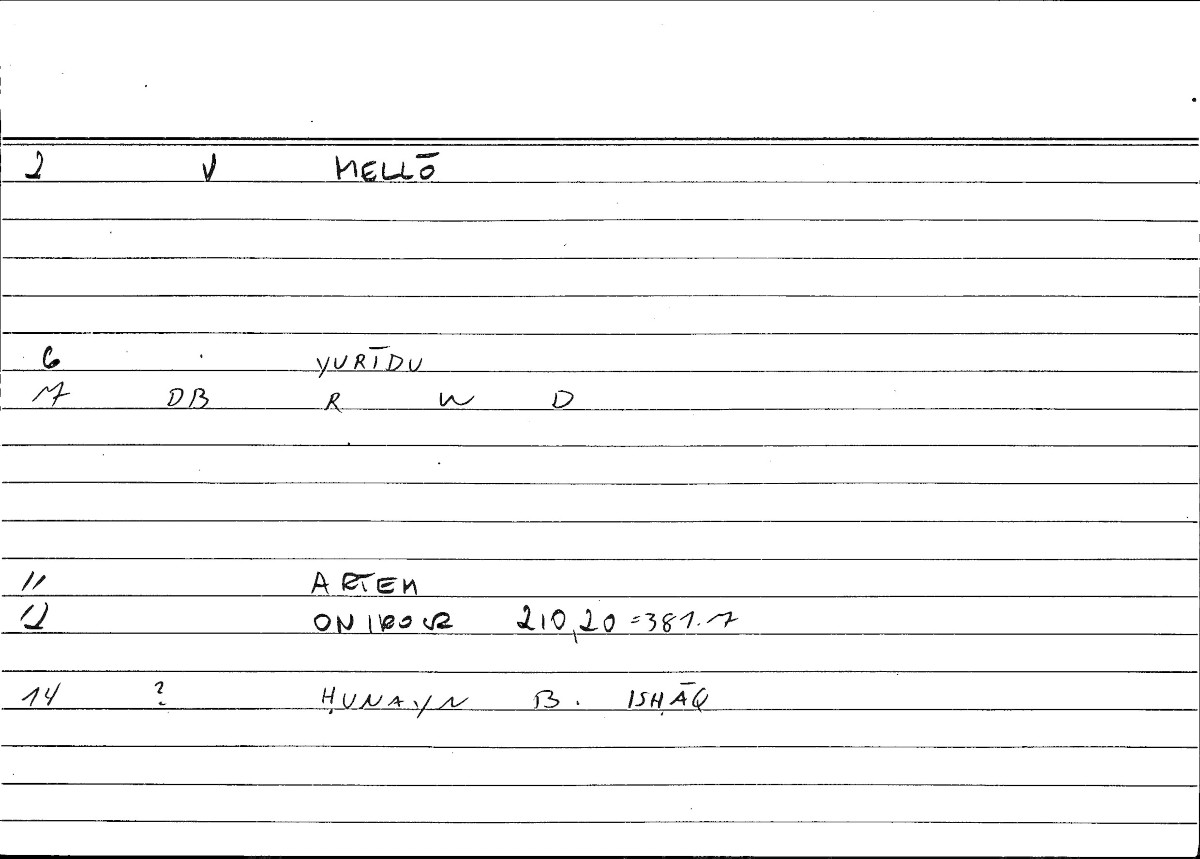 2 V MELLŌ
6 YURĪDU
7 DB R W D
11 ARTEM
12 ONIROCR 210,20=381.7
14 ? ḤUNAYN B. ISḤĀQ